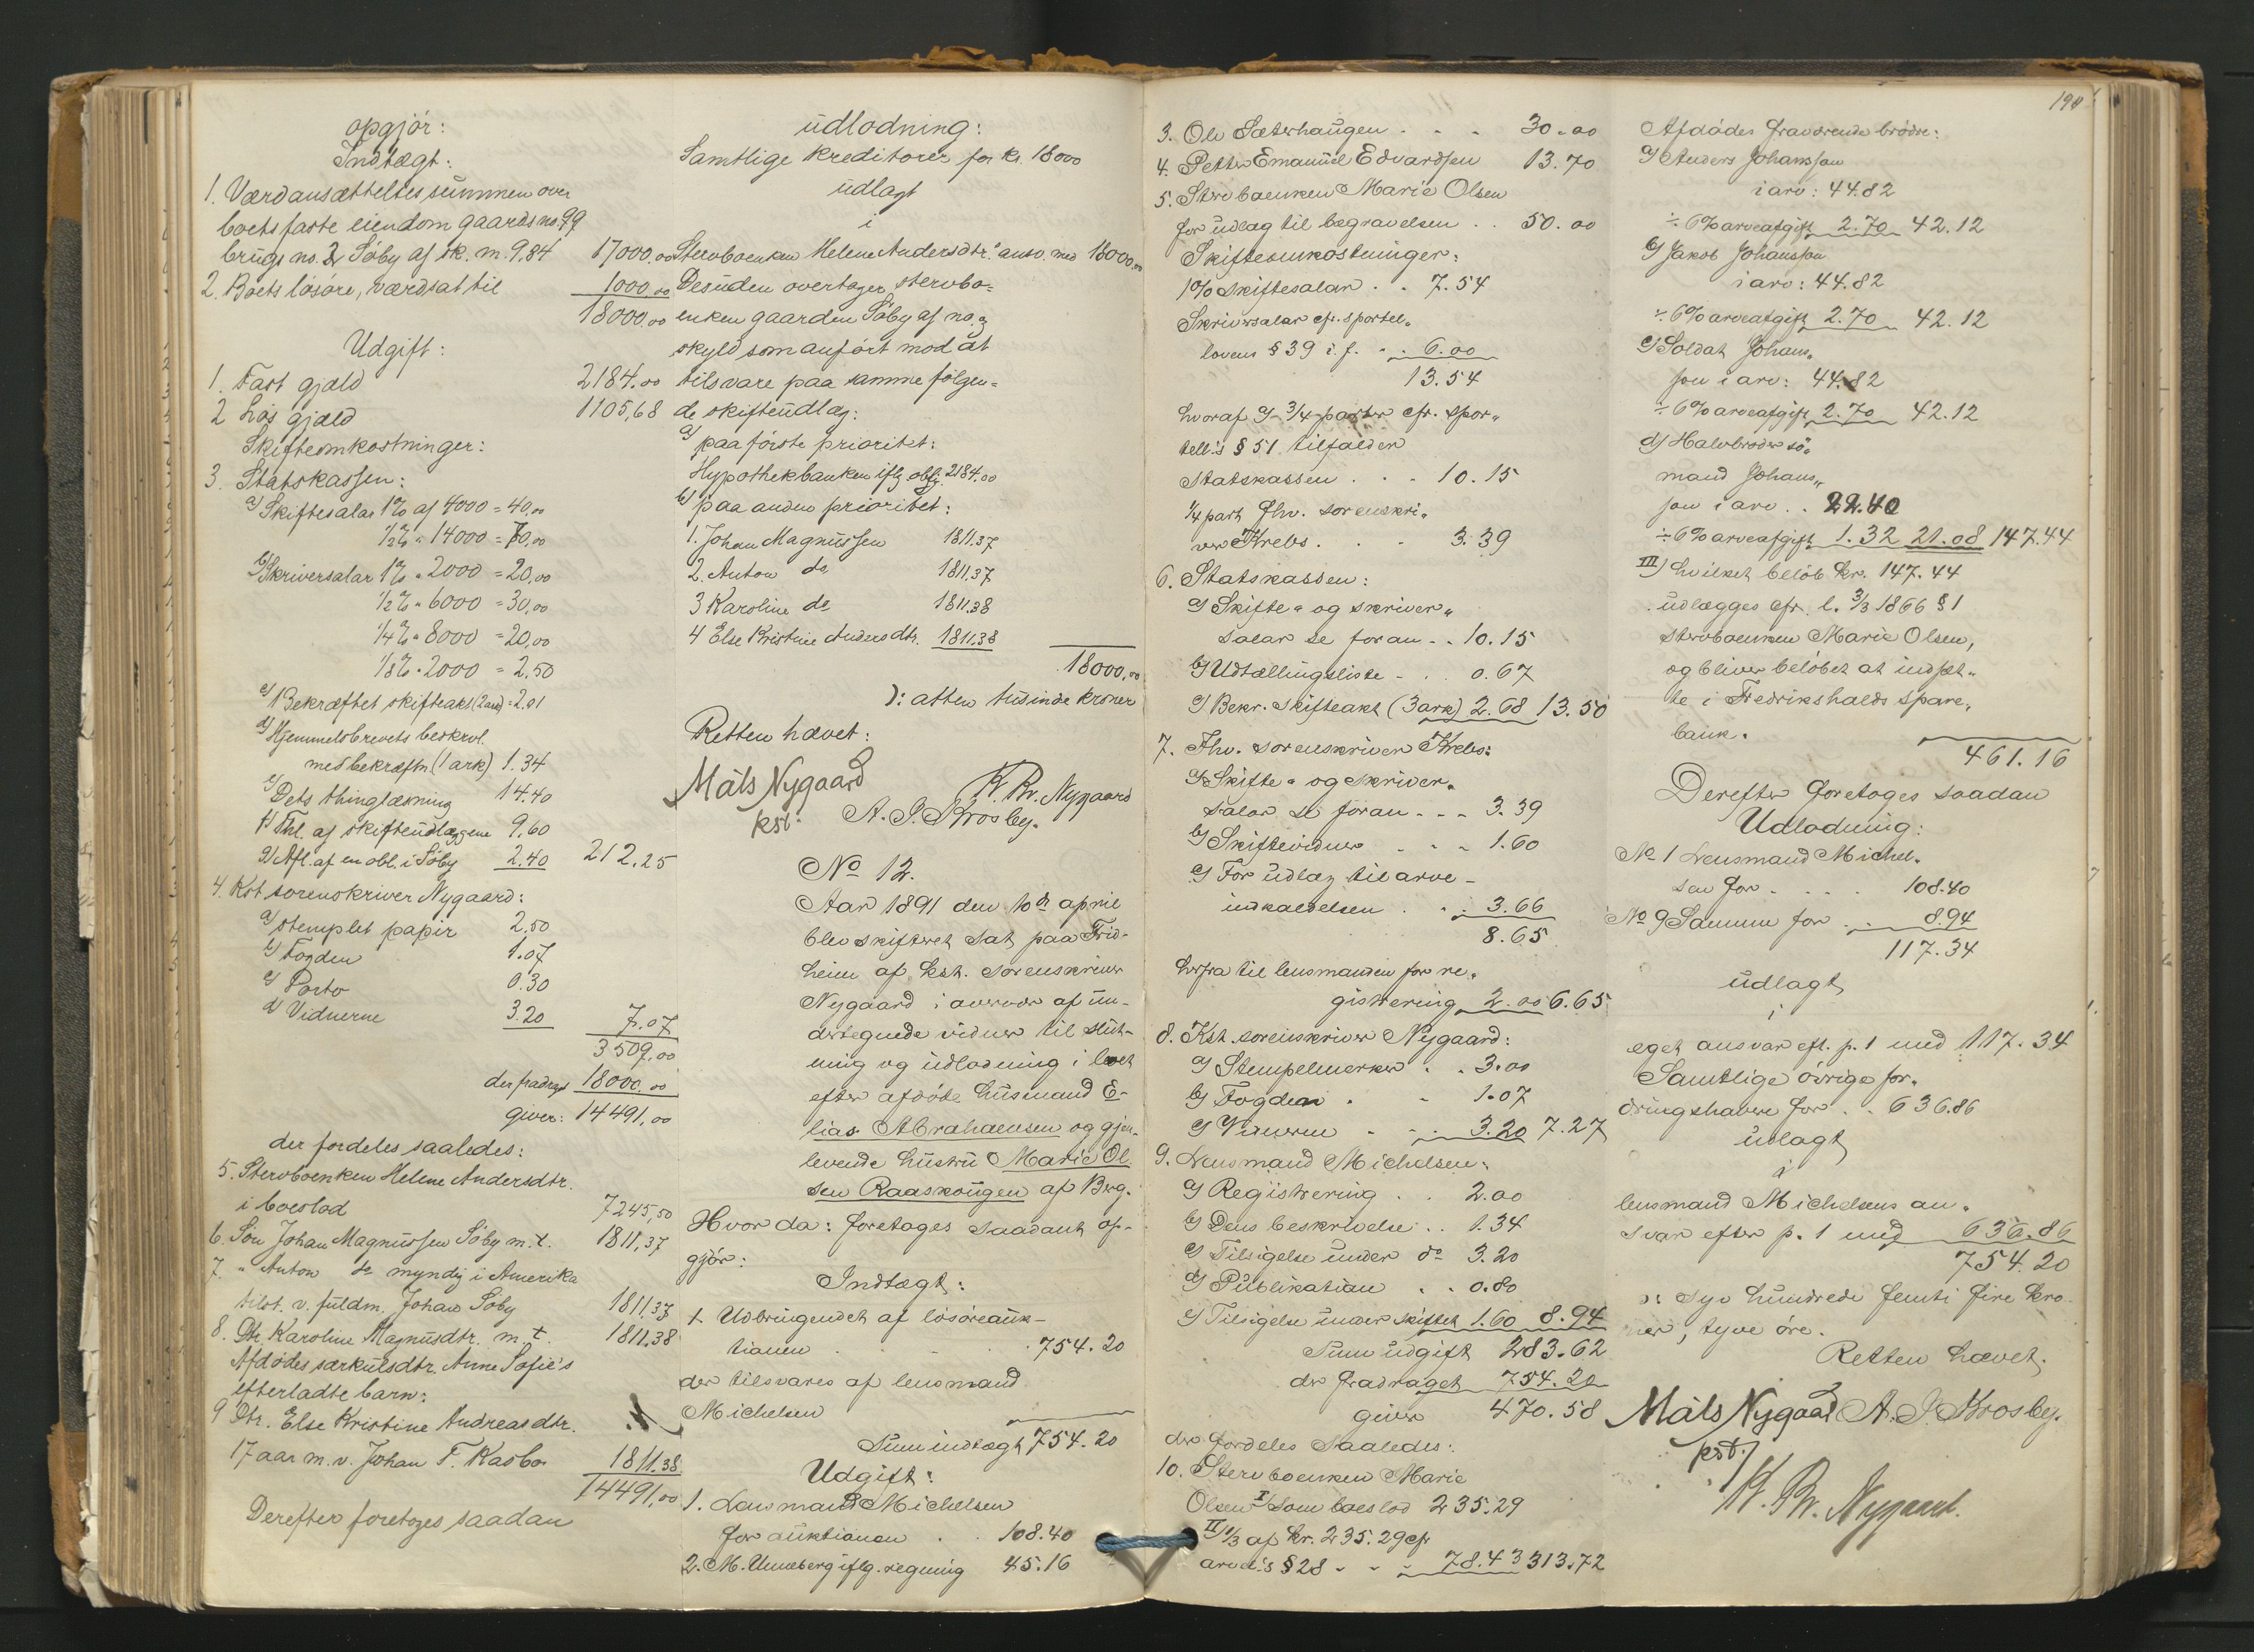 190
opgjör:
Indtægt:
1. Værdiansættelsessummen over
boets faste eiendom gaards no. 99
brugs no. 2 Söby af sk. m. 9.84 17000.00
2. Boets lösöre, værdsat til 1000.00
18000.00
Udgift:
1. Fast gjæld 2184.00
2 Lös gjæld 1105,68
Skifteomkostninger:
3. Statskassen:
a) Skiftesalar 1% af 4000 = 40,00
1/2% " 14000 = 70,00
b) Skriversalar 1% " 2000 = 20,00
1/2% " 6000 = 30,00
1/4% " 8000 = 20,00
1/8% " 2000 = 2.50
c) Bekræftet skifteakt (2 ark) = 2.01
d) Hjemmelsbrevets beskrvl.
med bekræftn (1 ark) 1.34
e) Dets thinglæsning 14.40
f) Thl. af skifteudlæggene 9.60
g) Afl. af en obl. i Söby 2.40 212.25
4. Kst sorenskriver Nygaard:
a) stemplet papir 2.50
b) Fogden 1.07
c) Porto 0.30
d) Vidnerne 3.20 7.07
3509,00
der fradraget 18000.00
giver: 14491,00
der fordeles saaledes:
5. Stervboenken Helene Andersdtr.
i boeslod 7245,50
6. Sön Johan Magnussen Söby m. t. 1811,37
7. " Anton do myndig i Amerika
tilst. v. fuldm. Johan Söby 1811,37
8. Dtr. Karoline Magnusdtr. m. t. 1811,38
Afdödes særkulsdtr. Anne Sofie's
efterladte barn:
9 Dtr. Else Kristine Andreasdtr.
17 aar m. v. Johan F. Kasbo 1811.38
14491,00
Derefter foretoges saadan
udlodning:
Samtlige kreditorer for kr. 18000
udlagt
i
Stervboenken Helene Andersdtr.' ansv. med 18000,00
Desuden overtager stervbo=
enken gaarden Söby af no. og
skyld som anfört mod at
tilsvare paa samme fölgen=
de skifteudlæg:
a) paa förste prioritet:
Hypothekbanken iflg obl. 2184.00
b) paa anden prioritet:
1. Johan Magnussen 1811,37
2. Anton do 1811,37
3 Karoline do 1811,38
4 Else Kristine Andersdtr. 1811,38
18000,00
): atten tusinde kroner
Retten hævet:
Måls Nygaard
kst.
K. Kr. Nygaard
A. J. Krosby.
No 12.
Aar 1891 den 10de april
blev skifteret sat paa Frid-
heim af kst. sorenskriver
Nygaard i overvær af un-
dertegnede vidner til slut-
ning og udlodning i boet
efter afdöde husmand E-
lias Abrahamsen og gjen-
levende hustru Marie Ol-
sen Raaskougen af Berg.
Hvorda: foretoges saadant op-
gjör:
Indtægt:
1. Udbringendet af lösöreauk-
tionen 754.20
der tilsvares af lensmand
Michelsen
Sum indtægt 754.20
Udgift:
1. Lensmand Michelsen
for auktionen 108.40
2. M. Unneberg iflg. regning 45.16
3. Ole Sæterhaugen 30.00
4. Petter Emanuel Edvardsen 13.70
5. Stervboenken Marie Olsen
for udlæg til begravelsen .. 50.00
Skifteomkostninger:
1% skiftesalar .. 7.54
Skriversalar cfr. sportel=
lovens § 39 i. f. .. 6.00
13.54
hvoraf 3/4 parter cfr. spor=
tell's § 51 tilfalder
statskassen ... 10.15
1/4 part fhv. sorenskri=
ver Krebs ... 3.39
6. Statskassen:
a) Skifte= og skriver=
salar se foran .. 10.15
b) Udtællingsliste - .. 0.67
c) Bekr. skifteakt (3 ark) 2.68 13.50
7. Fhv. sorenskriver Krebs:
a) Skifte= og skriver=
salar se foran - - - 3.39
b) Skiftevidner - - - 1.60
c) For udlæg til arve-
indkaldelsen .. 3.66
8.65
herfra til lensmanden for re=
gistrering 2.00 6.65
8. Kst. sorenskriver Nygaard:
a) Stempelmerker .. 3.00
b) Fogden - - 1.07
c) Vidnerne - - 3.20 7.27
9. Lensmand Michelsen:
a) Registrering .. 2.00
b) Dens beskrivelse .. 1.34
c) Tilsigelse under do 3.20
d) Publikation .. 0.80
e) Tilsigelse under skiftet 1.60 8.94
Sum udgift 283.62
der fradraget 754.20
giver 470.58
der fordeles saaledes:
10. Stervboenken Marie
Olsen I) som boeslod 235.29
II) 1/3 af kr. 235.29 cfr
arvel's § 28 - - - 78.43 313.72
Afdödes fraværende brödre:
a) Anders Johanssen
i arv: 44.82
÷ 6% arveafgift 2.70 42.12
b) Jakob Johanssen
i arv: 44.82
÷ 6% arveafgift 2.70 42.12
c) Soldat Johans=
sen i arv: 44.82
÷ 6% arveafgift 2.70 42.12
d) Halvbroder sö=
mand Johans=
sen i arv .. 22.40
÷ 6% arveafgift 1.32 21.08 147.44
III) hvilket belöb kr. 147.44
udlægges cfr. l. 3/3 1866 § 1
stervboenken Marie Olsen,
og bliver belöbet at indsæt=
te i Fredrikshalds spare=
bank.
461.16
Derefter foretoges saadan
Udlodning:
No 1 Lensmand Michel=
sen for .... 108.40
No 9 Samme for .. 8.94
117.34
udlagt
i
eget ansvar eft. p. 1 med 117.34
Samtlige övrige for=
dringshavere for .. 636.86
udlagt
i
lensmand Michelsens an=
svar efter p. 1 med 636.86
754.20
): syv hundrede femti fire kro-
ner, tyve öre.
Retten hævet.
Måls Nygaard A. J. Krosby.
kst.
K. Kr. Nygaard.